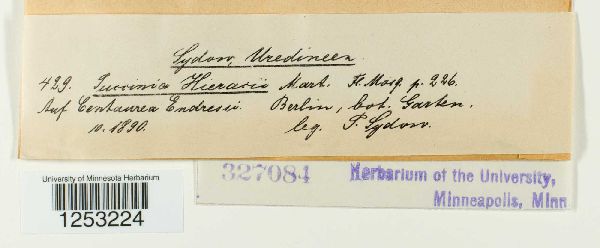 Sydow, Uredineen.
429. Puccinia Hieracii Mart. Fl. Mosq. p. 226.
Auf Centaurea Endresii. Berlin, bot. Garten.
v. 1890. leg. P. Sydow.
327084 Herbarium of the University,
Minneapolis, Minn
University of Minnesota Herbarium
1253224